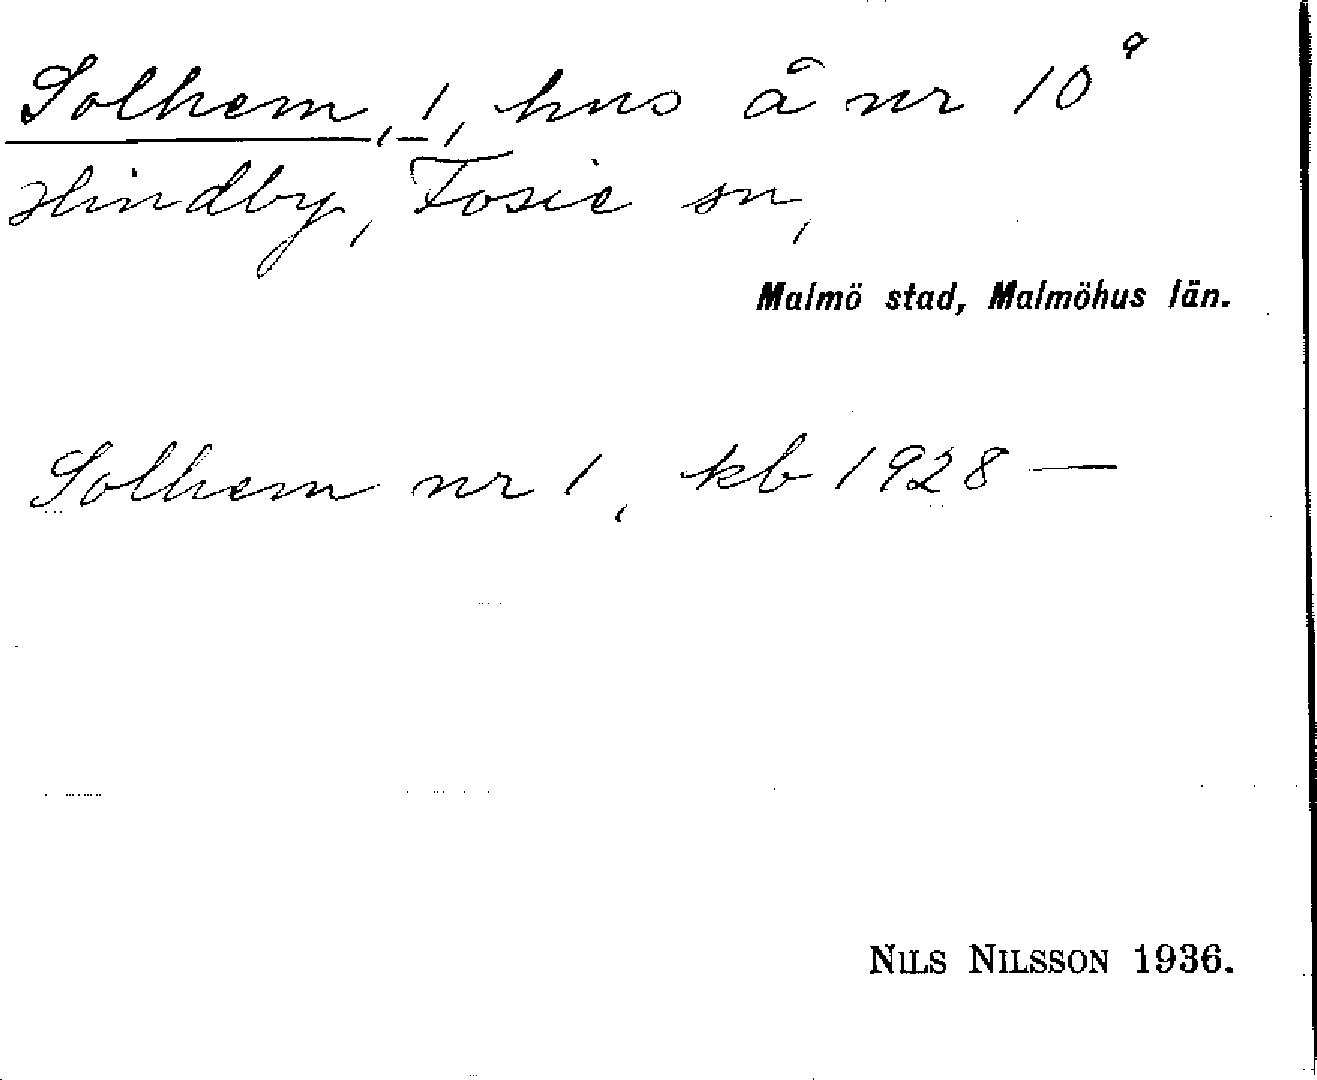 Solhem, 1, hus å nr 10ª
Hindby, Fosie sn,
Malmö stad, Malmöhus län.
Solhem nr 1, kb 1928 —
NILS NILSSON 1936.